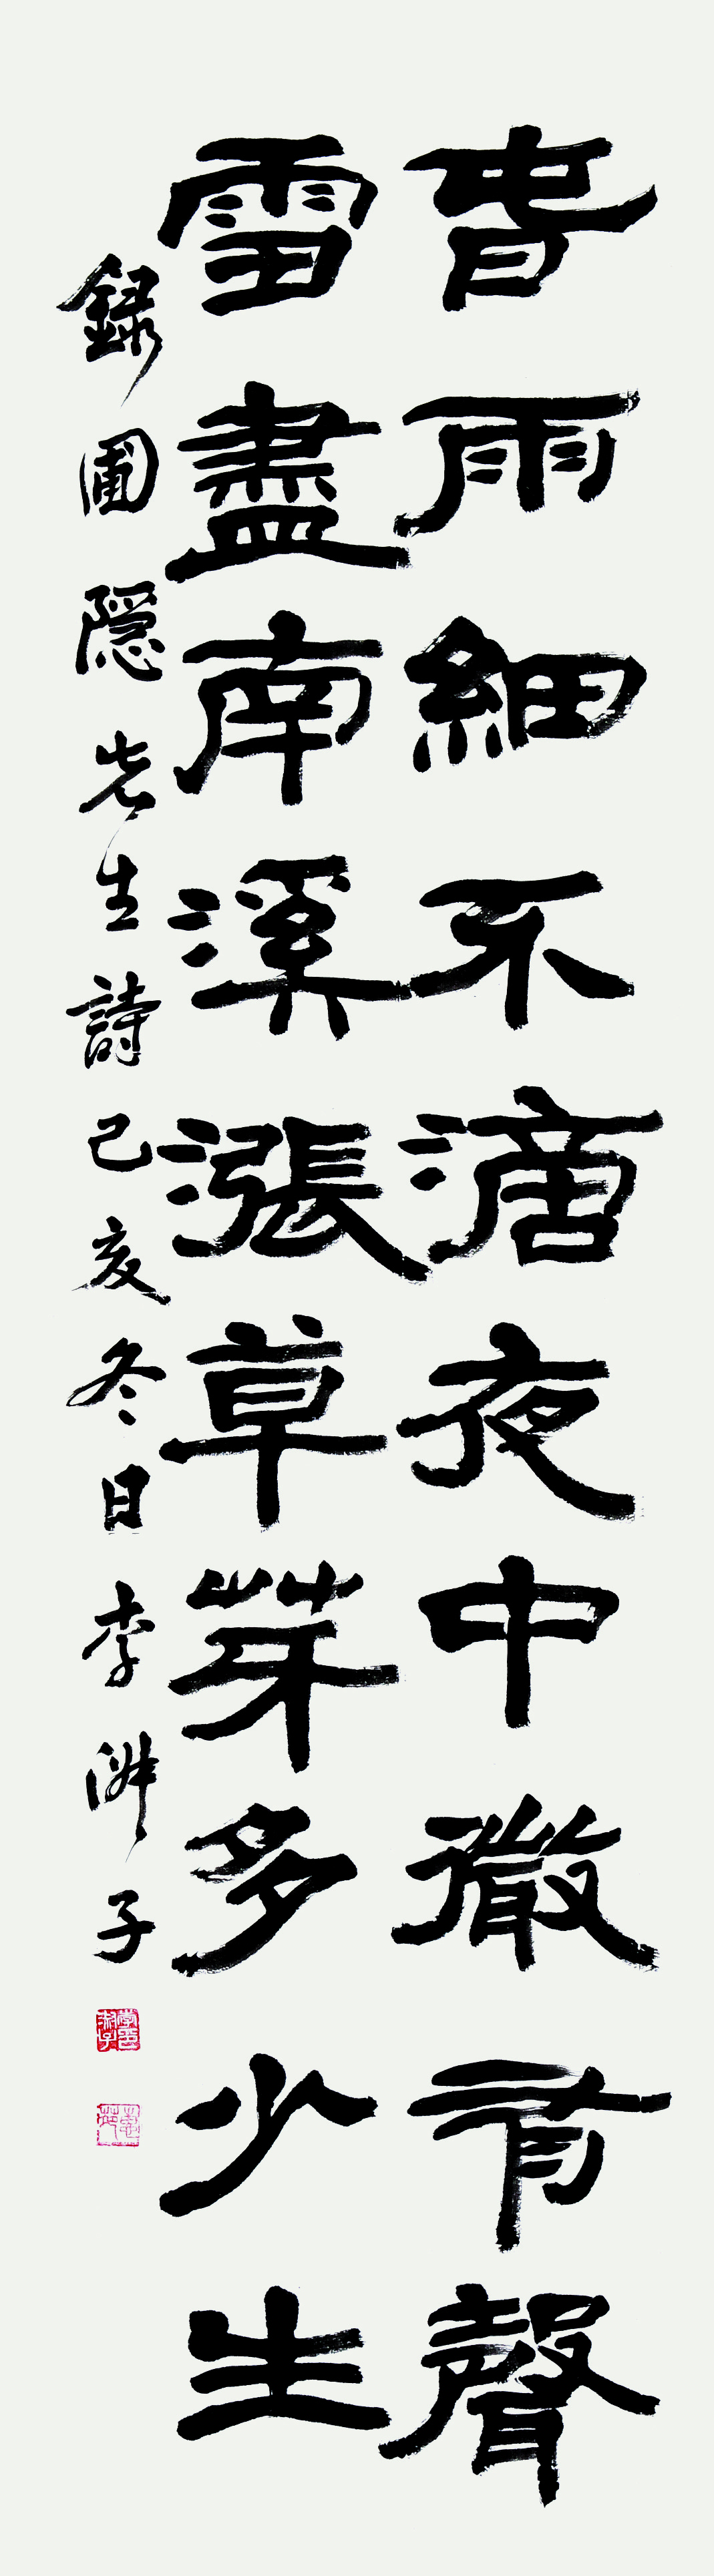 旾雨細不滴夜中微有聲
雪盡南溪漲草芽多少生
錄圃隱先生詩己亥冬日李淑子